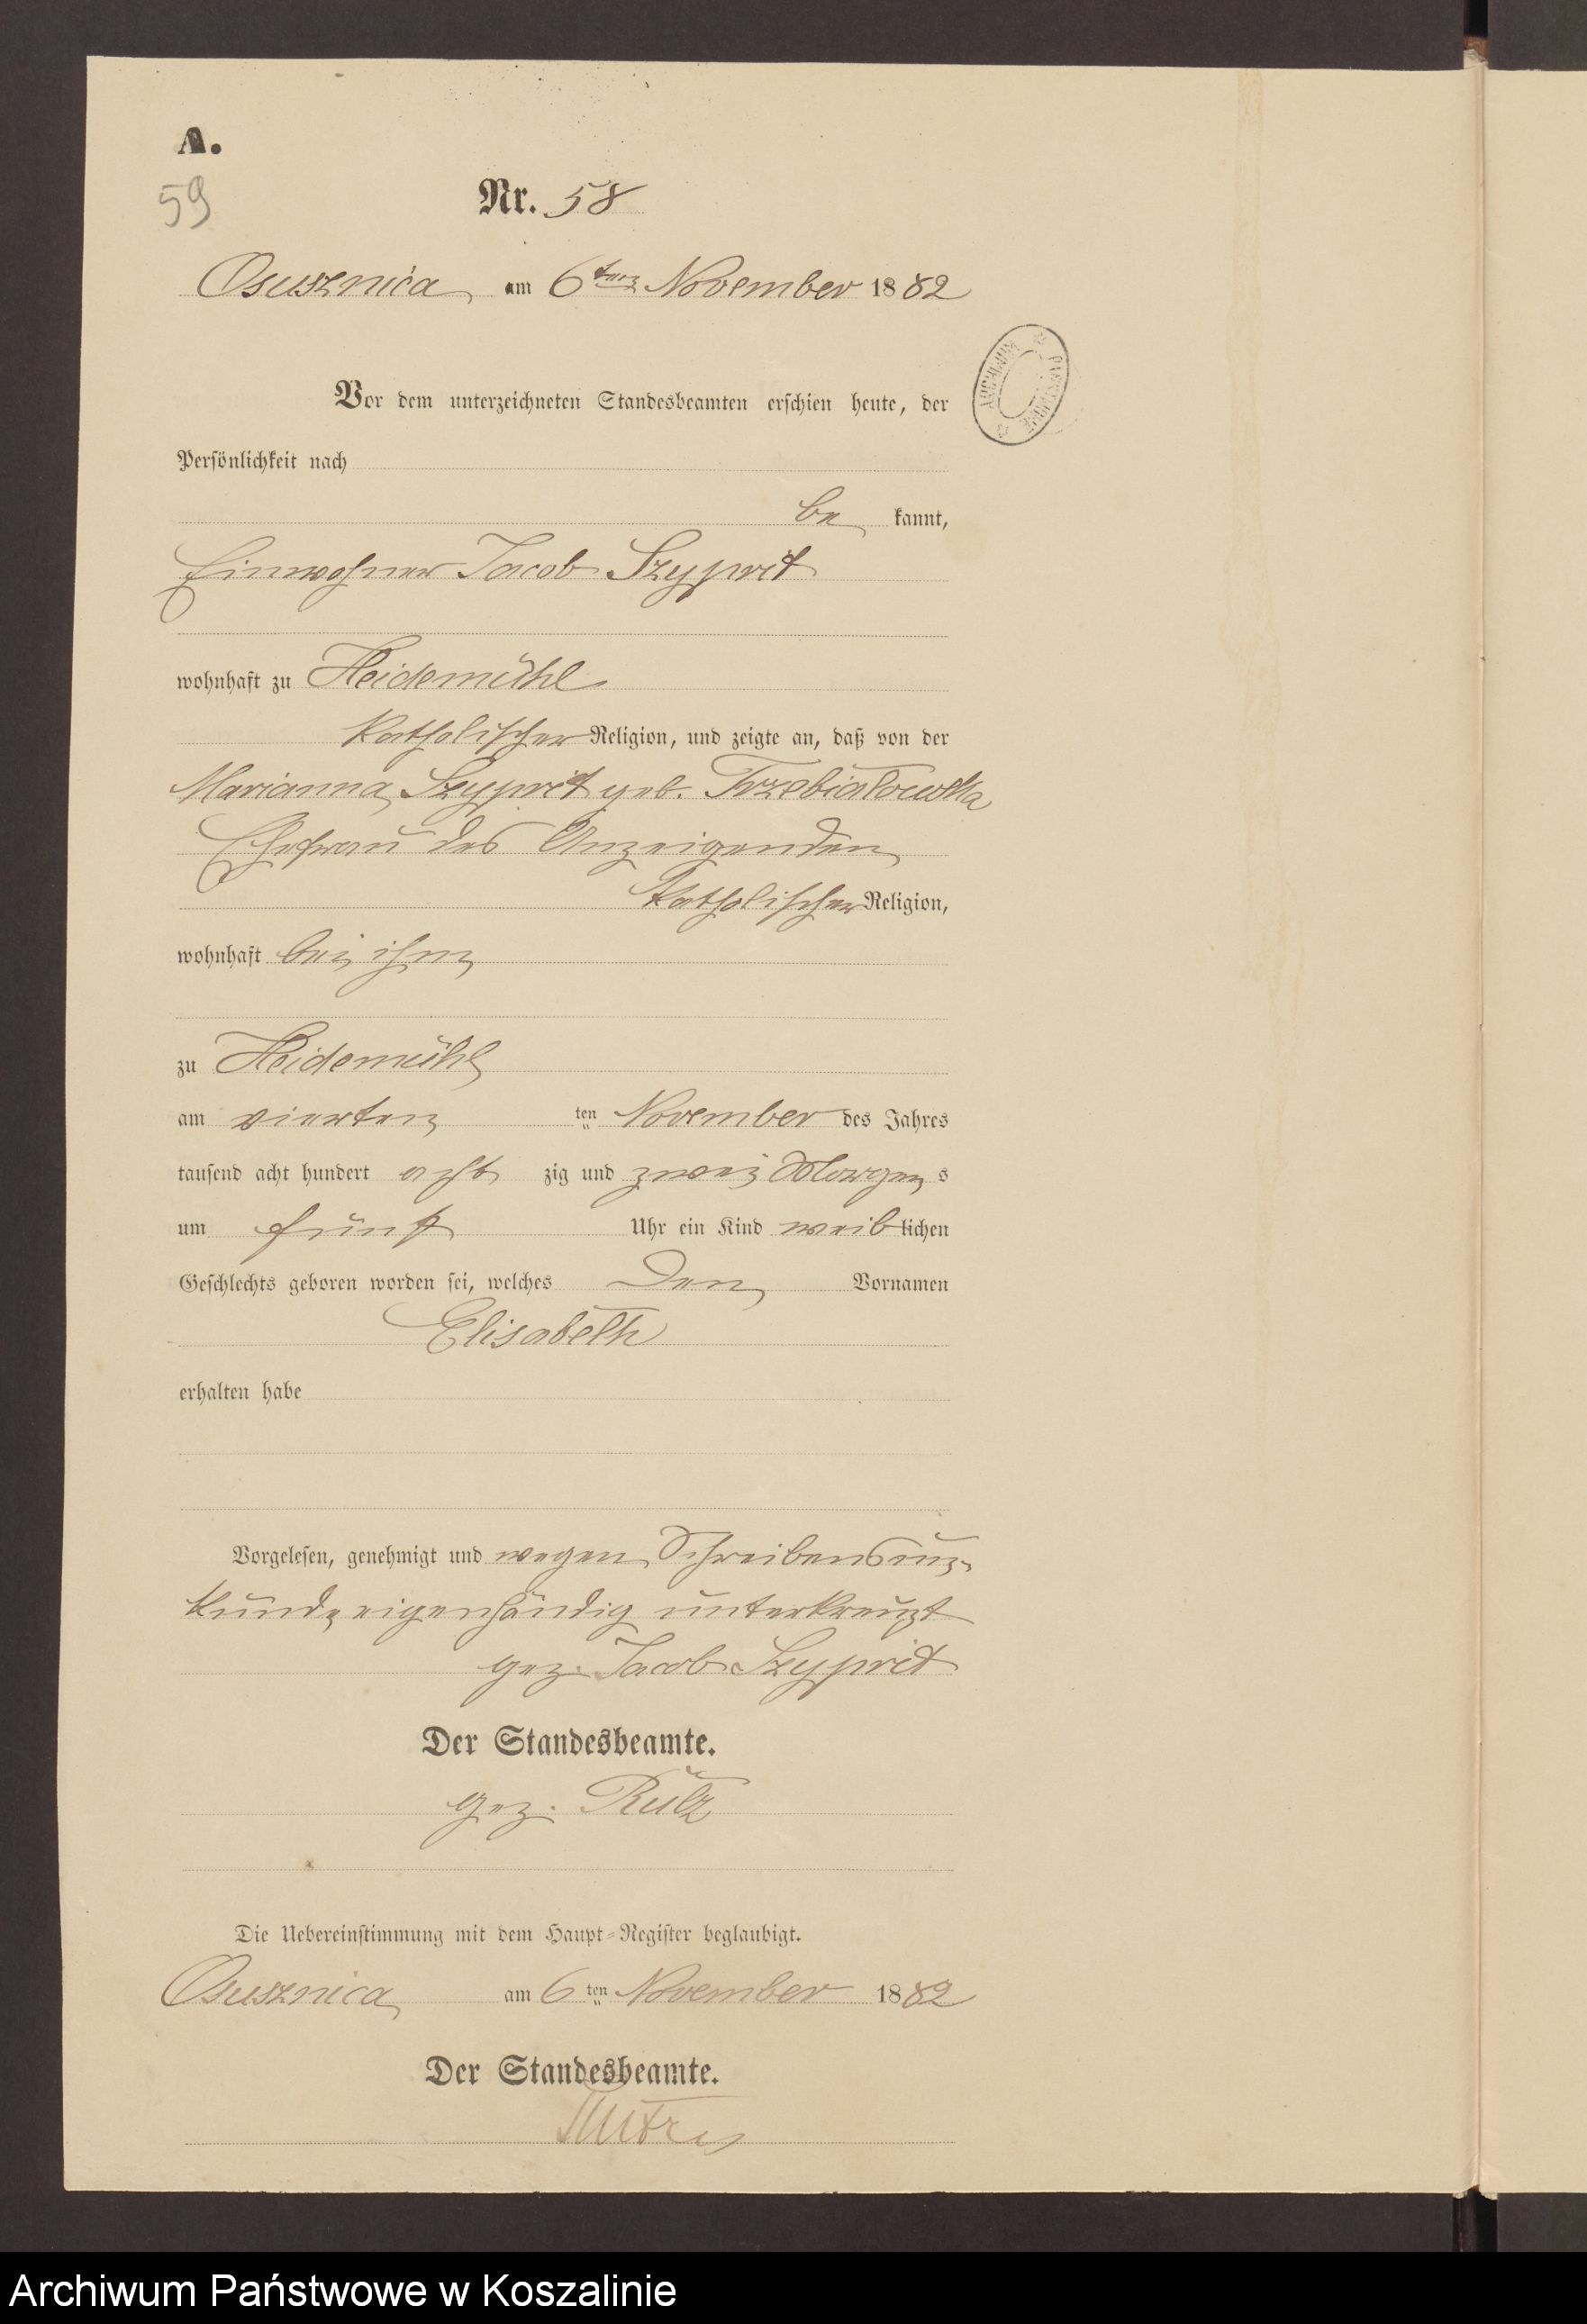 A.
59
Nr. 58
Osusznica am 6ten November 1882
Vor dem unterzeichneten Standesbeamten erschien heute, der
Persönlichkeit nach
be kannt,
Einwohner Jacob Szyprit
wohnhaft zu Heidemühl
katholischer Religion, und zeigte an, daß von der
Marianna Szyprit geb. Trzebiatowska
Ehefrau des Anzeigenden
katholischer Religion,
wohnhaft bei ihm
zu Heidemühl
am vierten ten November des Jahres
tausend acht hundert acht zig und zwei Morgen s
um fünf Uhr ein Kind weib lichen
Geschlechts geboren worden sei, welches den Vornamen
Elisabeth
erhalten habe
Vorgelesen, genehmigt und wegen Schreibensun-
kunde eigenhändig unterkreuzt
gez. Jacob Szyprit
Der Standesbeamte.
gez.
Die Uebereinstimmung mit dem Haupt-Register beglaubigt.
Osusznica am 6 ten November 1882
Der Standesbeamte.
Archiwum Państwowe w Koszalinie